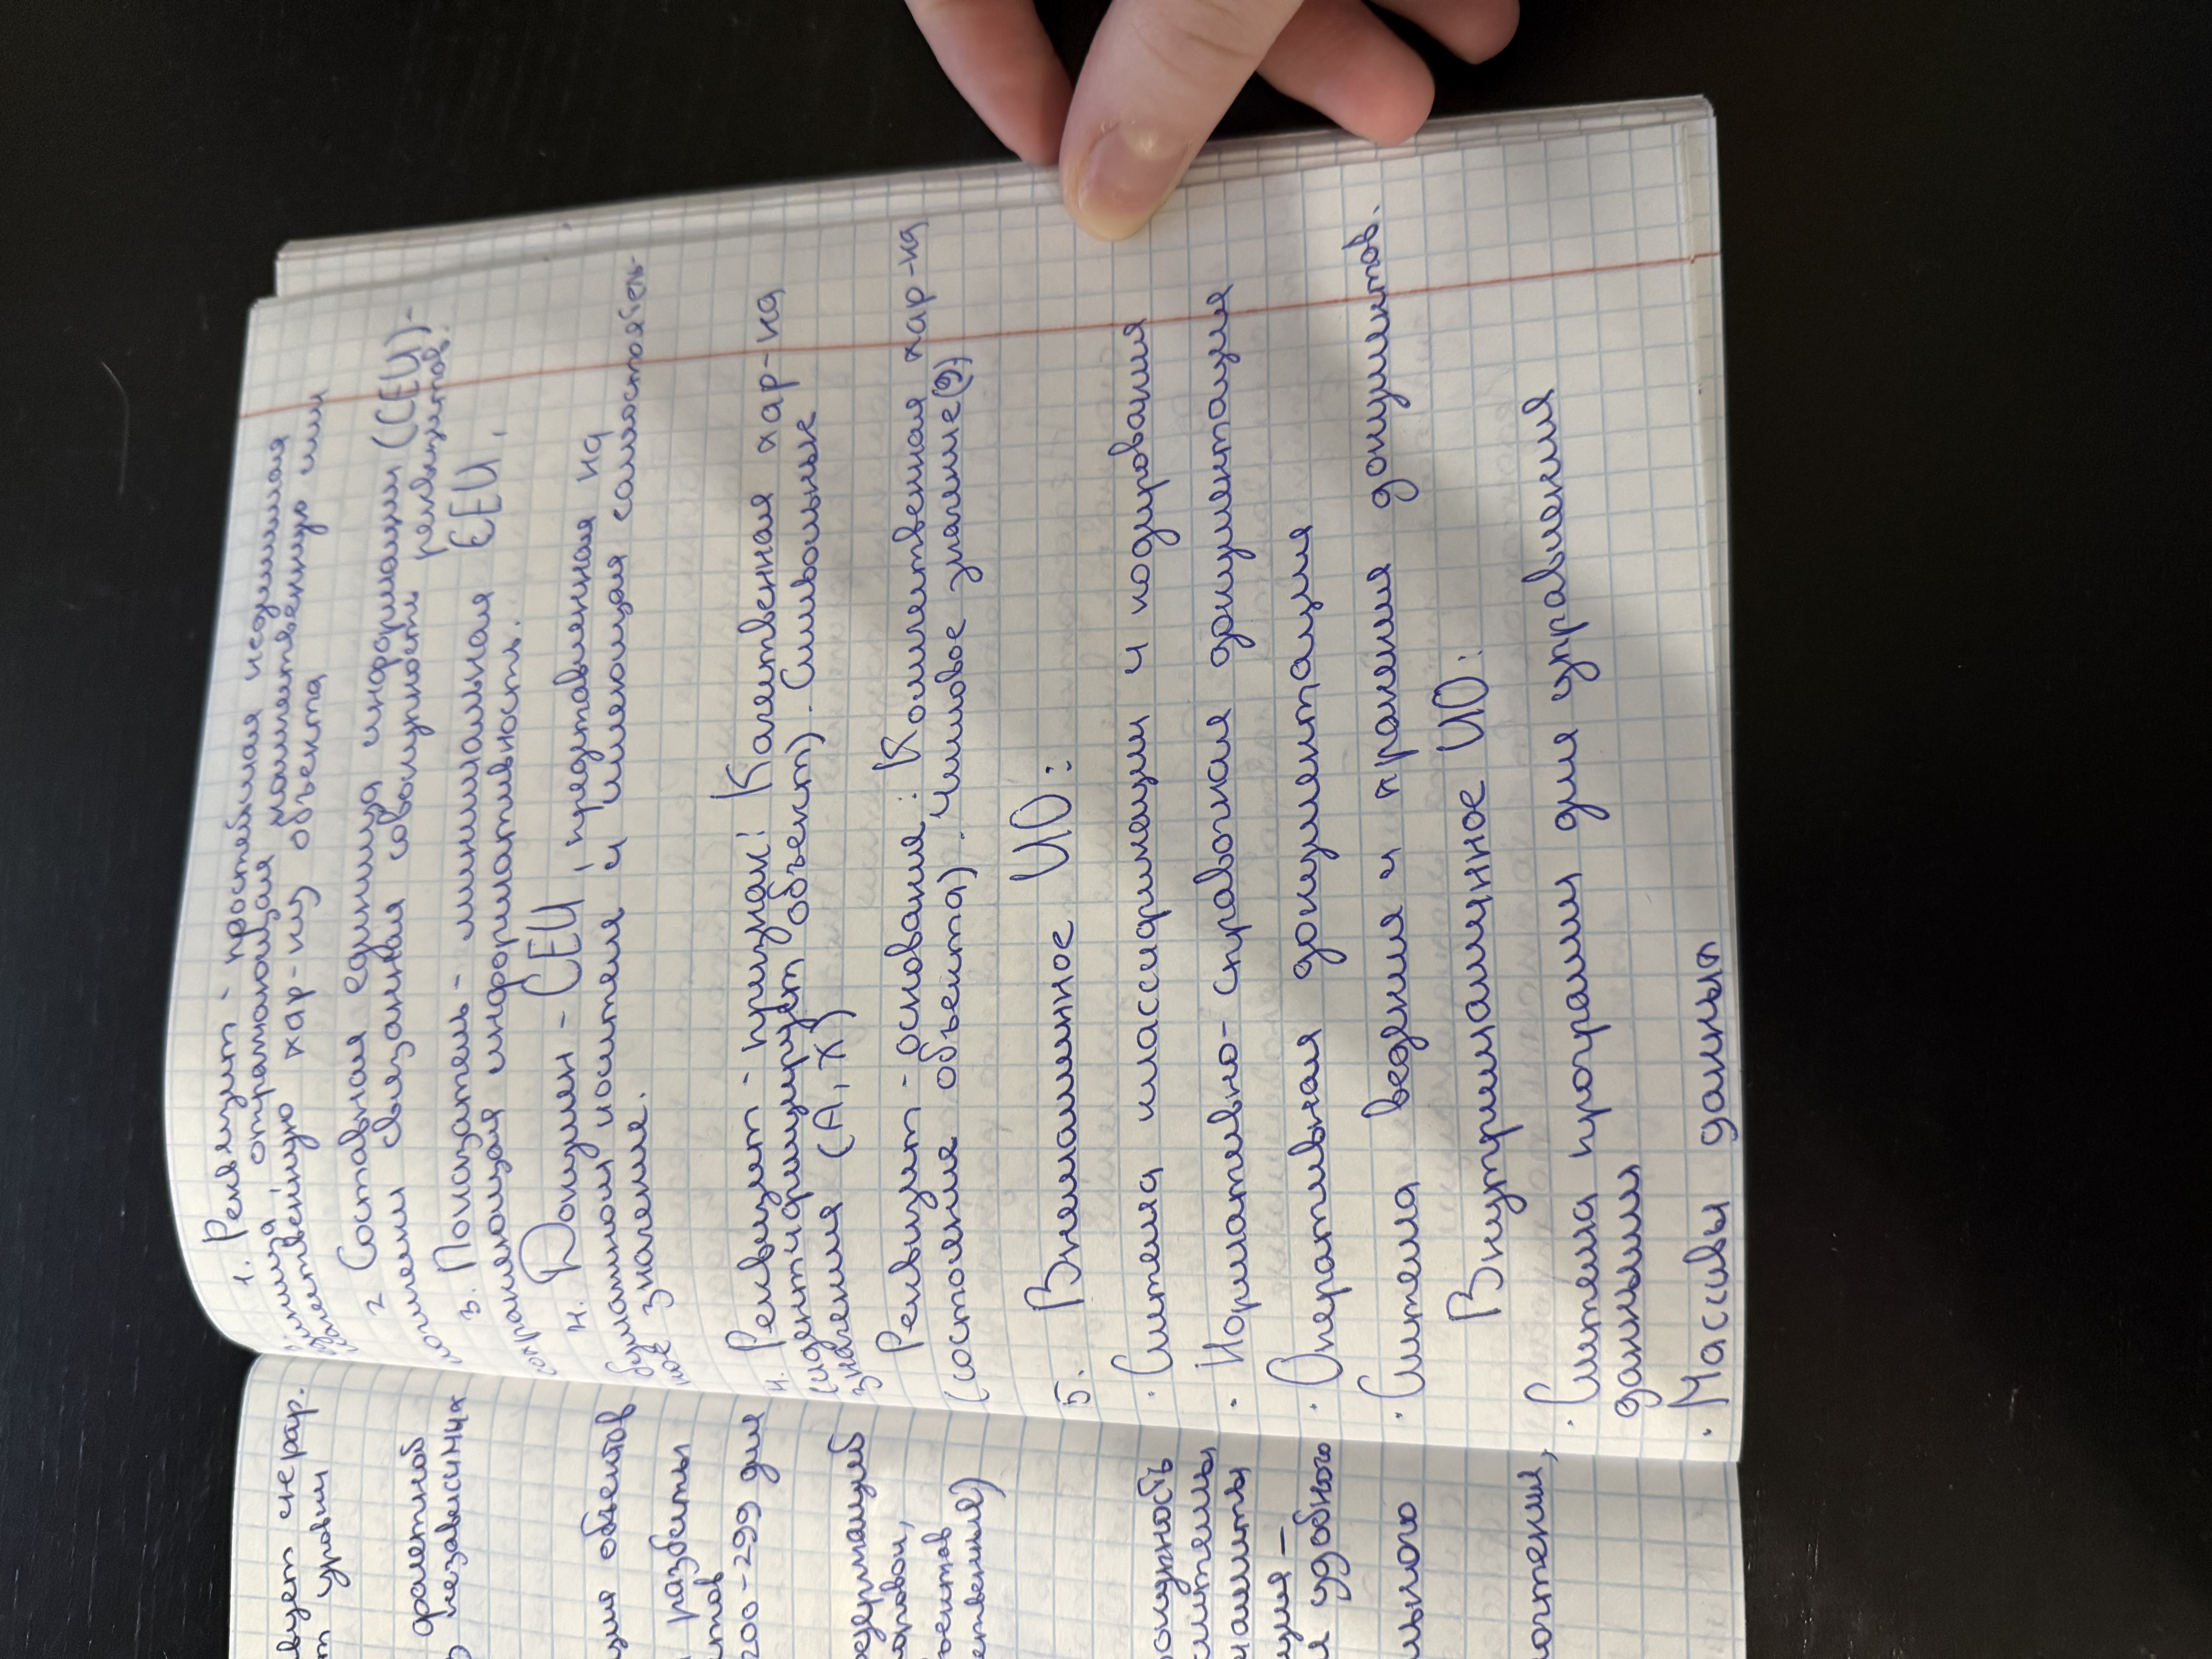 вует иерар.
т уровни
фасетной
независимых
ция объектов
разбиты
ктов
200-299 для
держащей
оровой,
ъектов
ественных)
вокупность
ция —
я удобного
льного
почтений,
1. Реквизит - простейшая неделимая
единица отражающая количественную или
качественную хар-ку объекта
2 Составная единица информации (СЕИ) -
логически связанная совокупность реквизитов.
3. Показатель - минимальная СЕИ,
сохраняющая информативность.
4. Докумен - СЕИ, представленная на
бумажном носителе и имеющая самостоятель-
ное значение.
4. Реквизит - признак: Качественная хар-ка
(идентифицирует объект). Символьные
значения (А, Х)
Реквизит - основание: Количественная хар-ка
(состояние объекта). Числовое значение (9)
5. Внемашинное ИО:
· Система классификации и кодирования
· Нормативно-справочная документация
· Оперативная документация
· Система ведения и хранения документов.
Внутримашинное ИО:
· Система программ для управления
данными
· Массивы данных